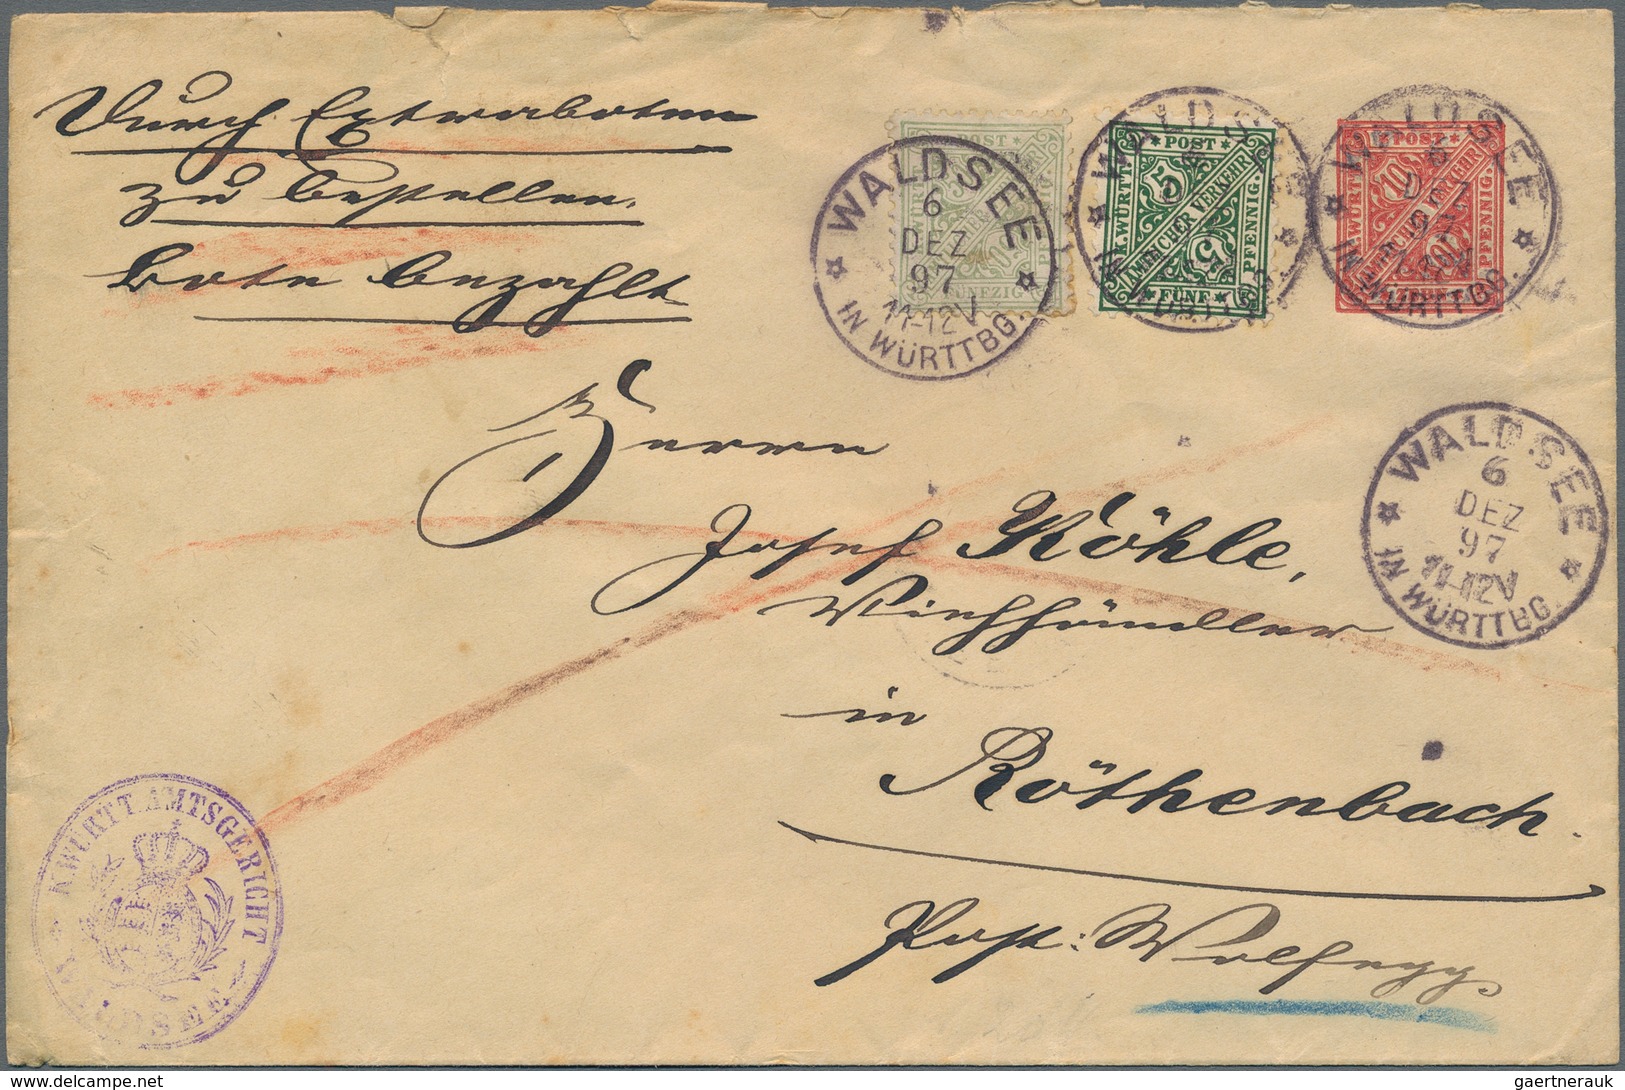 Durch Extraboten
zu bestellen.
Bote bezahlt
POST
FÜNFZIG
WALDSEE
6
DEZ
97
11-12V
IN WÜRTTBG.
POST
K.WÜRTT.
AMTLICHER VERKEHR
PFENNIG.
5
5
FÜNF
WALDSEE
POST
WÜRTT.
10
PFENNIG.
WALDSEE
6
DEZ
97
IN WÜRTTBG.
WALDSEE
6
DEZ
97
11-12V
IN WÜRTTBG.
Herrn
Josef Köhle,
Viehhändler
in
Röthenbach.
Post: Wolfegg.
K.WÜRTT.AMTSGERICHT
WALDSEE
gaertnerauk